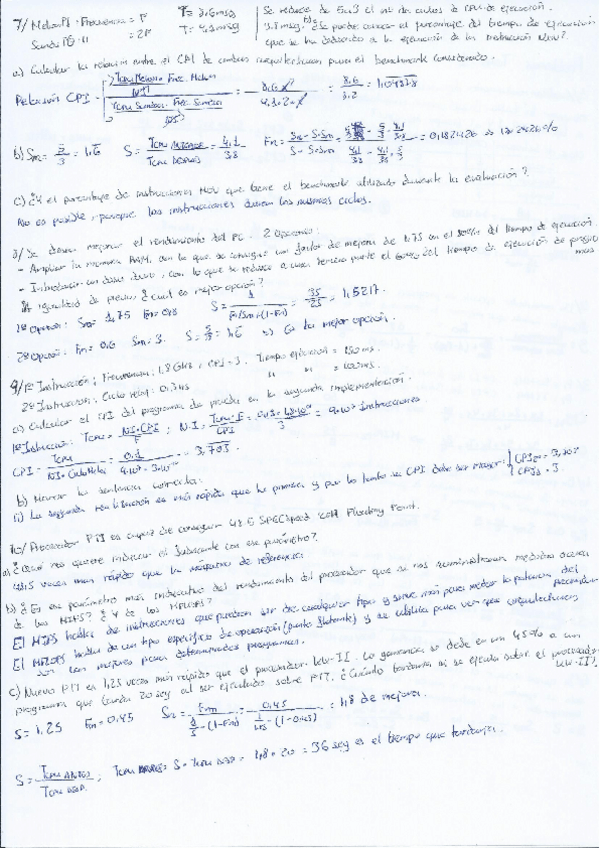 7/ Melon PI: Frecuencia = F T = 8.6 mseg
Sandía PS-II = 2F T = 4.3 mseg
Se reduce de 5 a 3 el nº de ciclos de CPU de ejecución.
3.8 mseg. b) ¿Se puede conocer el porcentaje del tiempo de ejecución
que se ha dedicado a la ejecución de las instrucción Mov?
a) Calcular la relación entre el CPI de ambas arquitecturas para el benchmark considerado.
Relación CPI =
b) Sm = 5/3 = 1.6 S = Tcpu antes / Tcpu después = 4.1/3.8 Fm = (Sm - S·Sm)/(S - S·Sm) = = 0,182426 => 18.2426%
c) ¿Y el porcentaje de instrucciones Mov que tiene el benchmark utilizado durante la evaluación?
No es posible, porque las instrucciones duran los mismos ciclos.
8/ Se desea mejorar el rendimiento del PC - 2 Opciones:
- Ampliar la memoria RAM, con lo que se consigue un factor de mejora de 1.75 en el 80% del tiempo de ejecución.
- Introducir un disco duro, con lo que se reduce a una tercera parte el 60% del tiempo de ejecución de programas
A igualdad de precio ¿cuál es mejor opción?
1ª Opción: Sm = 1.75 Fm = 0.8 S = 1 / (Fm/Sm + (1-Fm)) = 35/23 = 1,5217.
2ª Opción: Fm = 0.6 Sm = 3. S = 5/3 = 1.6 => Es la mejor opción.
9/ 1ª Instrucción: Frecuencia: 1.8 GHz, CPI = 3. Tiempo ejecución = 150 ms.
2ª Instrucción: Ciclo reloj: 0.3 ns " " = 100 ms.
a) Calcular el CPI del programa de prueba en la segunda implementación.
1ª Instrucción: Tcpu = NI·CPI / F ; N.I = Tcpu·F / CPI = = 9·10⁷ Instrucciones
CPI = Tcpu / (NI·Ciclo Reloj) = = 3,703.
b) Marcar la sentencia correcta:
ii) La segunda realización es más rápida que la primera y por lo tanto su CPI debe ser mayor:
10/ Procesador PII es capaz de conseguir 48.5 SPECspeed con Floating Point.
a) ¿Qué nos quiere indicar el fabricante con ese parámetro?
48.5 veces más rápido que la máquina de referencia.
b) ¿Es ese parámetro más indicativo del rendimiento del procesador que si nos suministrasen medidas acerca
de los MIPS? ¿Y de los MFLOPS?
El MIPS habla de instrucciones que puedan ser de cualquier tipo y sirve más para medir la potencia del procesador
El MFLOPS habla de un tipo específico de operación (punto flotante) y se utiliza para ver que arquitecturas
son las mejores para determinados programas.
c) Nuevo P17 es 1,25 veces más rápido que el procesador kw-II. La ganancia se debe en un 45% a un
programa que tarda 20 seg al ser ejecutado sobre P17. ¿Cuánto tardaría si se ejecuta sobre el procesador kw-II?
S = 1.25 Fm = 0.45 Sm = Fm / (1/S - (1-Fm)) = 0.45 / (1/1.25 - (1-0.45)) = 1,8 de mejora.
S = Tcpu ANTES / Tcpu DESP. ; Tcpu ANTES = S · Tcpu DESP = 1,8 · 20 = 36 seg es el tiempo que tardaría.